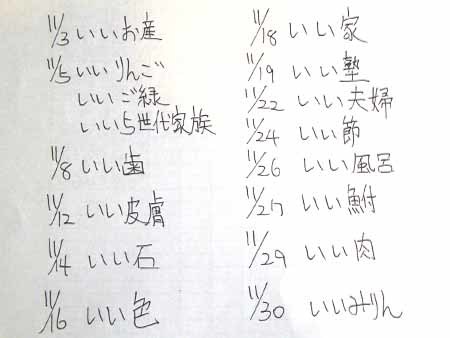 11/3 いいお産
11/5 いいりんご
いいご縁
いい5世代家族
11/8 いい歯
11/12 いい皮膚
11/14 いい石
11/16 いい色
11/18 いい家
11/19 いい塾
11/22 いい夫婦
11/24 いい節
11/26 いい風呂
11/27 いい鮒
11/29 いい肉
11/30 いいみりん